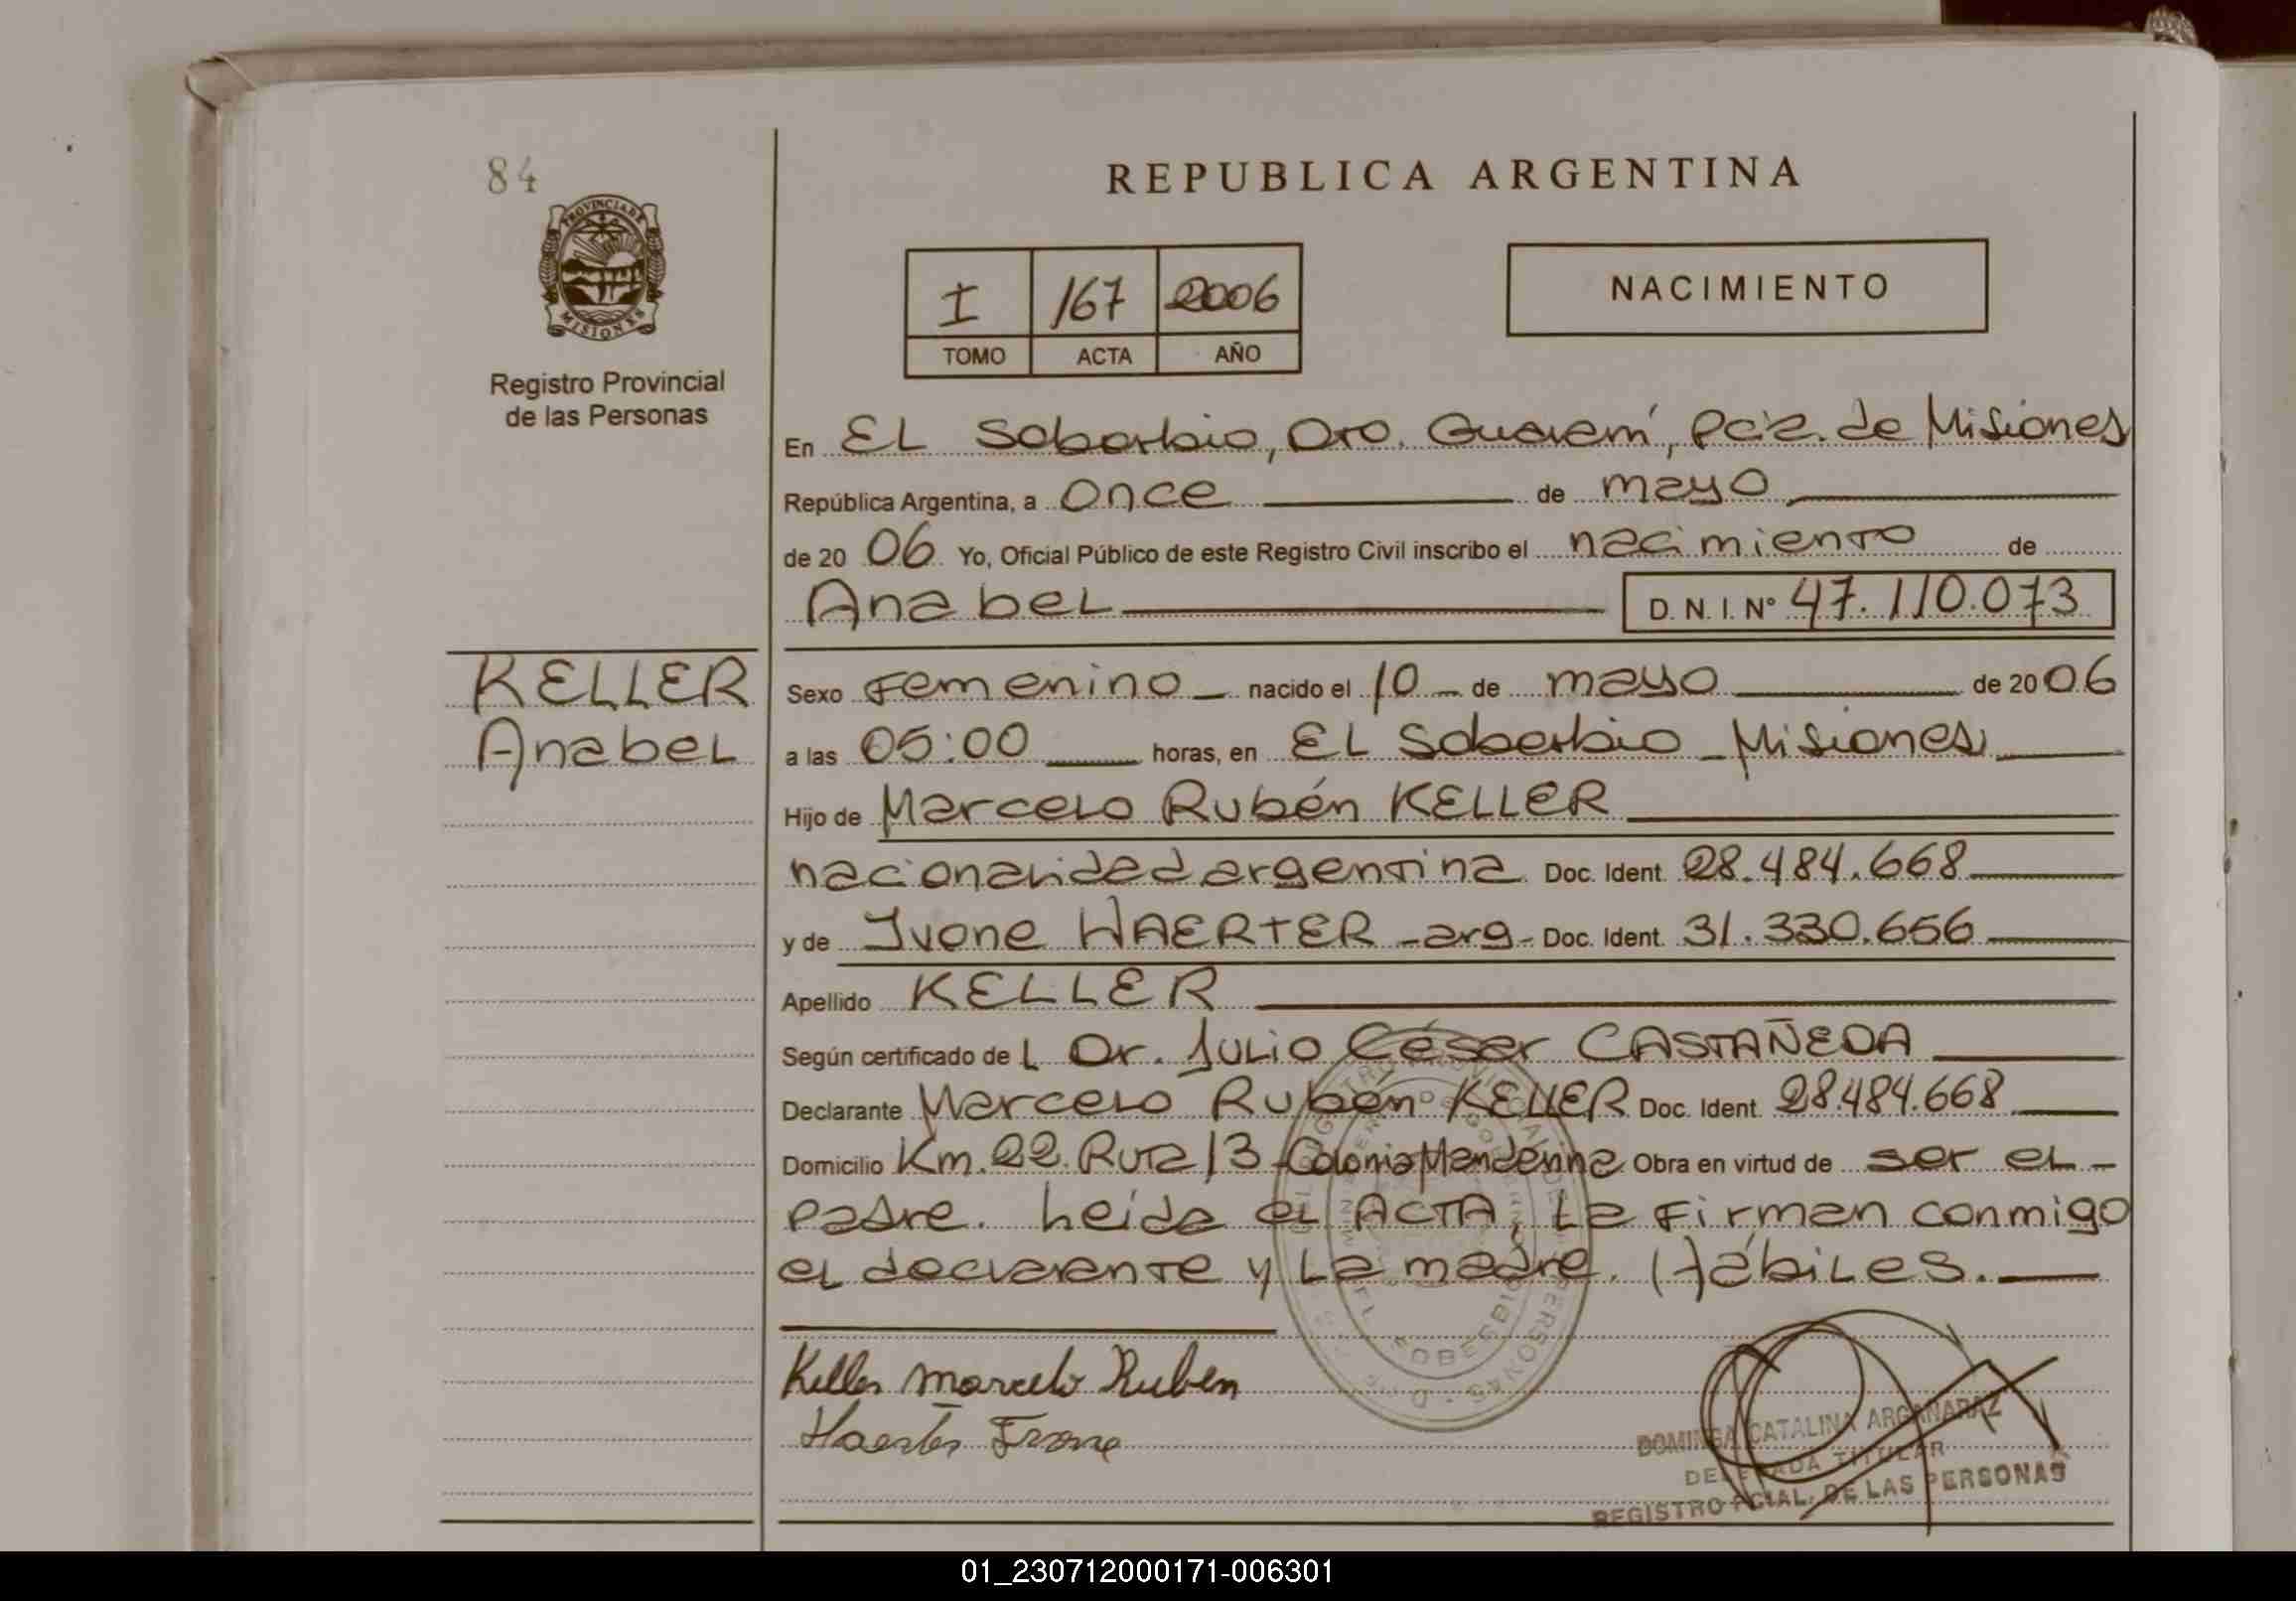 84
REPUBLICA ARGENTINA
PROVINCIA DE
MISIONES
Registro Provincial
de las Personas
I 167 2006
TOMO ACTA AÑO
NACIMIENTO
En EL Soberbio, Dto. Guaraní, Pcia. de Misiones
República Argentina, a once de mayo
de 2006 Yo, Oficial Público de este Registro Civil inscribo el nacimiento de
Anabel D.N.I. Nº 47.110.073
KELLER
Anabel
Sexo Femenino nacido el 10 de mayo de 2006
a las 05:00 horas, en EL Soberbio - Misiones
Hijo de Marcelo Rubén KELLER
nacionalidad argentina Doc. Ident. 28.484.668
y de Ivone HAERTER - arg - Doc. Ident. 31.330.656
Apellido KELLER
Según certificado del Dr. Julio César CASTAÑEDA
Declarante Marcelo Rubén KELLER Doc. Ident. 28.484.668
Domicilio Km. 22 Ruta 13 - Colonia Mandarina Obra en virtud de ser el -
padre. Leída el ACTA, la firman conmigo
el declarante y la madre. Hábiles.
Keller Marcelo Ruben
Haerter Ivone
DOMINGA CATALINA ARGAÑARAZ
DELEGADA TITULAR
REGISTRO PCIAL. DE LAS PERSONAS
01_230712000171-006301